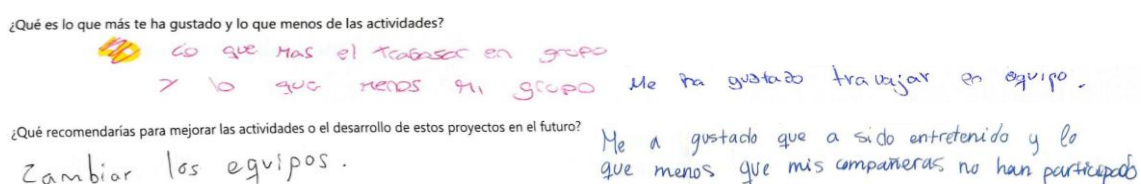 ¿Qué es lo que más te ha gustado y lo que menos de las actividades?
Lo que mas el trabasar en grupo
y lo que menos mi grupo
Me ha gustado travajar en equipo.
¿Qué recomendarías para mejorar las actividades o el desarrollo de estos proyectos en el futuro?
Zambiar los equipos.
Me a gustado que a sido entretenido y lo
que menos que mis compañeras no han participado